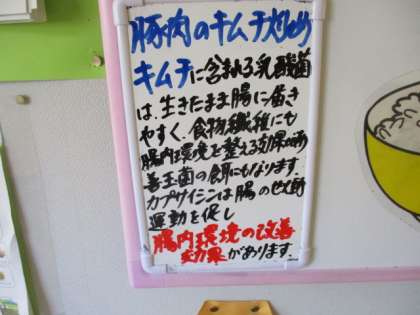 豚肉のキムチ炒め
キムチに含まれる乳酸菌
は、生きたまま腸に届き
やすく、食物繊維にも
腸内環境を整える効果があり
善玉菌の餌にもなります。
カプサイシンは腸の
運動を促し
腸内環境の改善
効果があります。